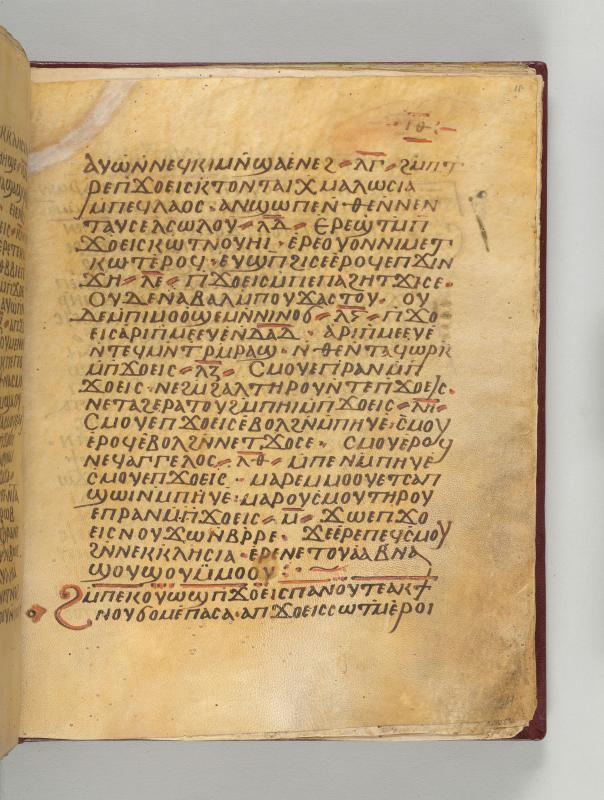 ⲓⲑ
ⲁⲩⲱⲛⲛⲉϥⲕⲓⲙⲛ̄ϣⲁⲉⲛⲉϩ · ⲗ̄ⲅ̄ · ϩⲙⲡⲧ
ⲣⲉⲡϫⲟⲉⲓⲥⲕⲧⲟⲛⲧⲁⲓⲭⲙⲁⲗⲱⲥⲓⲁ
ⲙⲡⲉϥⲗⲁⲟⲥ · ⲁⲛϣⲱⲡⲉⲛ̄ · ⲑⲉⲛⲛⲉⲛ
ⲧⲁⲩⲥⲉⲗⲥⲱⲗⲟⲩ · ⲗ̄ⲇ̄ · ⲉⲣⲉϣⲧⲙⲡ̄
ϫⲟⲉⲓⲥⲕⲱⲧⲛⲟⲩⲏⲓ · ⲉⲣⲉⲟⲩⲟⲛⲛⲓⲙⲉⲧ
ⲕⲱⲧⲉⲣⲟϥ · ⲉⲩϣⲡϩⲓⲥⲉⲉⲣⲟϥⲉⲡϫⲓⲛ
ϫⲏ · ⲗ̄ⲉ̄ · ⲡ̄ϫⲟⲉⲓⲥⲙⲡⲉⲡⲁϩⲏⲧϫⲓⲥⲉ ·
ⲟⲩⲇⲉⲛⲁⲃⲁⲗⲙⲡⲟⲩϫⲁⲥⲧⲟⲩ · ⲟⲩ
ⲇⲉⲙⲡⲓⲙⲟⲟϣⲉⲙⲛⲛⲓⲛⲟϭ · ⲗ̄ⲋ̄ · ⲡ̄ϫⲟ
ⲉⲓⲥⲁⲣⲓⲡⲙⲉⲉⲩⲉⲛ̄ⲇⲁⲇ̄ · ⲁⲣⲓⲡⲙⲉⲉⲩⲉ
ⲛⲧⲉϥⲙⲛⲧⲣⲙⲣⲁϣ · ⲛ̄ⲑⲉⲛⲧⲁϥⲱⲣⲕ
ⲙⲡ̄ϫⲟⲉⲓⲥ · ⲗ̄ⲍ̄ · ⲥⲙⲟⲩⲉⲡⲣⲁⲛⲙⲡ̄
ϫⲟⲉⲓⲥ · ⲛⲉϩⲙϩⲁⲗⲧⲏⲣⲟⲩⲛⲧⲉⲡϫⲟⲉⲓⲥ ·
ⲛⲉⲧⲁϩⲉⲣⲁⲧⲟⲩϩⲙⲡⲏⲓⲙⲡ̄ϫⲟⲉⲓⲥ · ⲗ̄ⲏ̄ ·
ⲥⲙⲟⲩⲉⲡϫⲟⲉⲓⲥⲉⲃⲟⲗϩⲛⲙⲡⲏⲩⲉ · ⲥⲙⲟⲩ
ⲉⲣⲟϥⲉⲃⲟⲗϩⲛⲛⲉⲧϫⲟⲥⲉ · ⲥⲙⲟⲩⲉⲣⲟϥ
ⲛⲉϥⲁⲅⲅⲉⲗⲟⲥ · ⲗ̄ⲑ̄ · ⲙⲡⲉⲛⲙⲡⲏⲩⲉ
ⲥⲙⲟⲩⲉⲡϫⲟⲉⲓⲥ · ⲙⲁⲣⲉⲙⲙⲟⲟⲩⲉⲧⲥⲁⲡ
ϣⲱⲓⲛⲙⲡⲏⲩⲉ · ⲙⲁⲣⲟⲩⲥⲙⲟⲩⲧⲏⲣⲟⲩ
ⲉⲡⲣⲁⲛⲙⲡ̄ϫⲟⲉⲓⲥ · ⲙ̄ · ϫⲱⲉⲡϫⲟ
ⲉⲓⲥⲛⲟⲩϫⲱⲛ̄ⲃⲣ̄ⲣⲉ · ϫⲉⲉⲣⲉⲡⲉϥⲥⲙⲟⲩ
ϩⲛⲛⲉⲕⲕⲗⲏⲥⲓⲁ · ⲉⲣⲉⲛⲉⲧⲟⲩⲁⲁⲃⲛⲁ
ϣⲟⲩϣⲟⲩⲙ̄ⲙⲟⲟⲩ :
ϩⲙⲡⲉⲕⲟⲩⲱϣⲡϫⲟⲉⲓⲥⲡⲁⲛⲟⲩⲧⲉⲁⲕϯ
ⲛⲟⲩϭⲟⲙⲉⲡⲁⲥⲁ · ⲁⲡϫⲟⲉⲓⲥⲥⲱⲧⲙⲉⲣⲟⲓ